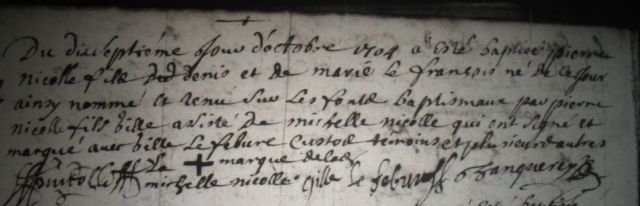 Du dixseptiéme Jour d'octobre 1704 a esté baptisé pierre
nicolle fils de denis et de marie le françois né de ce Jour
ainsy nommé et tenu sur les fonts baptismaux par pierre
nicolle fils assisté de michelle nicolle qui ont signé et
marqué avec le febure Custos témoins et plusieurs autres
La + marque de lad
michelle nicolle Gille le febure Tanquerey